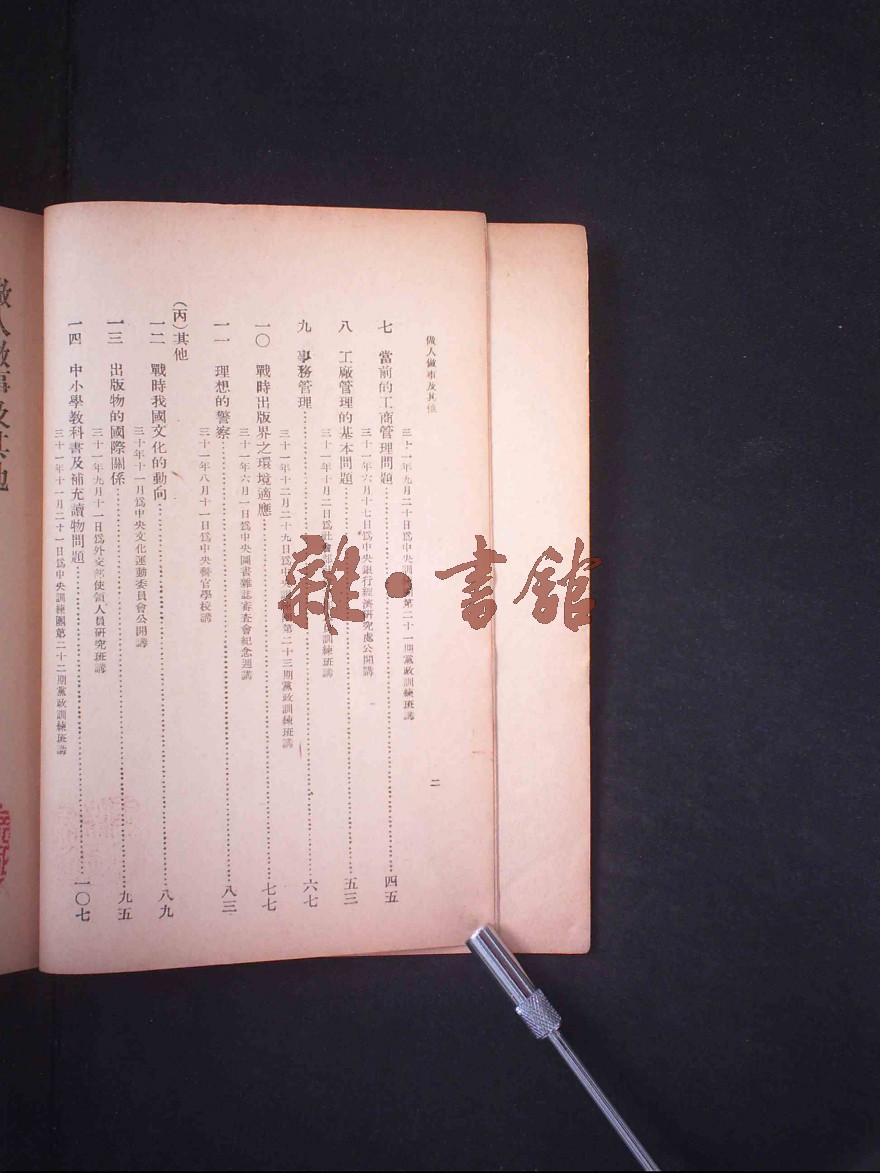 做人做事及其他
二
七　當前的工商管理問題………四五
三十一年九月二十日爲中央訓練團第二十一期黨政訓練班講
八　工廠管理的基本問題………五三
三十一年六月十七日爲中央銀行經濟研究處公開講
九　事務管理………六七
三十一年十月二日爲社會部 訓練班講
一〇　戰時出版界之環境適應………七七
三十一年十二月二十九日爲中 第二十三期黨政訓練班講
一一　理想的警察………八三
三十一年六月一日爲中央圖書雜誌審查會紀念週講
三十一年八月十一日爲中央警官學校講
(丙)其他
一二　戰時我國文化的動向………八九
三十年十一月爲中央文化運動委員會公開講
一三　出版物的國際關係………九五
三十一年九月十一日爲外交部使領人員研究班講
一四　中小學教科書及補充讀物問題………一〇七
三十一年十一月二十一日爲中央訓練團第二十二期黨政訓練班講
做人做事及其他
雜·書館